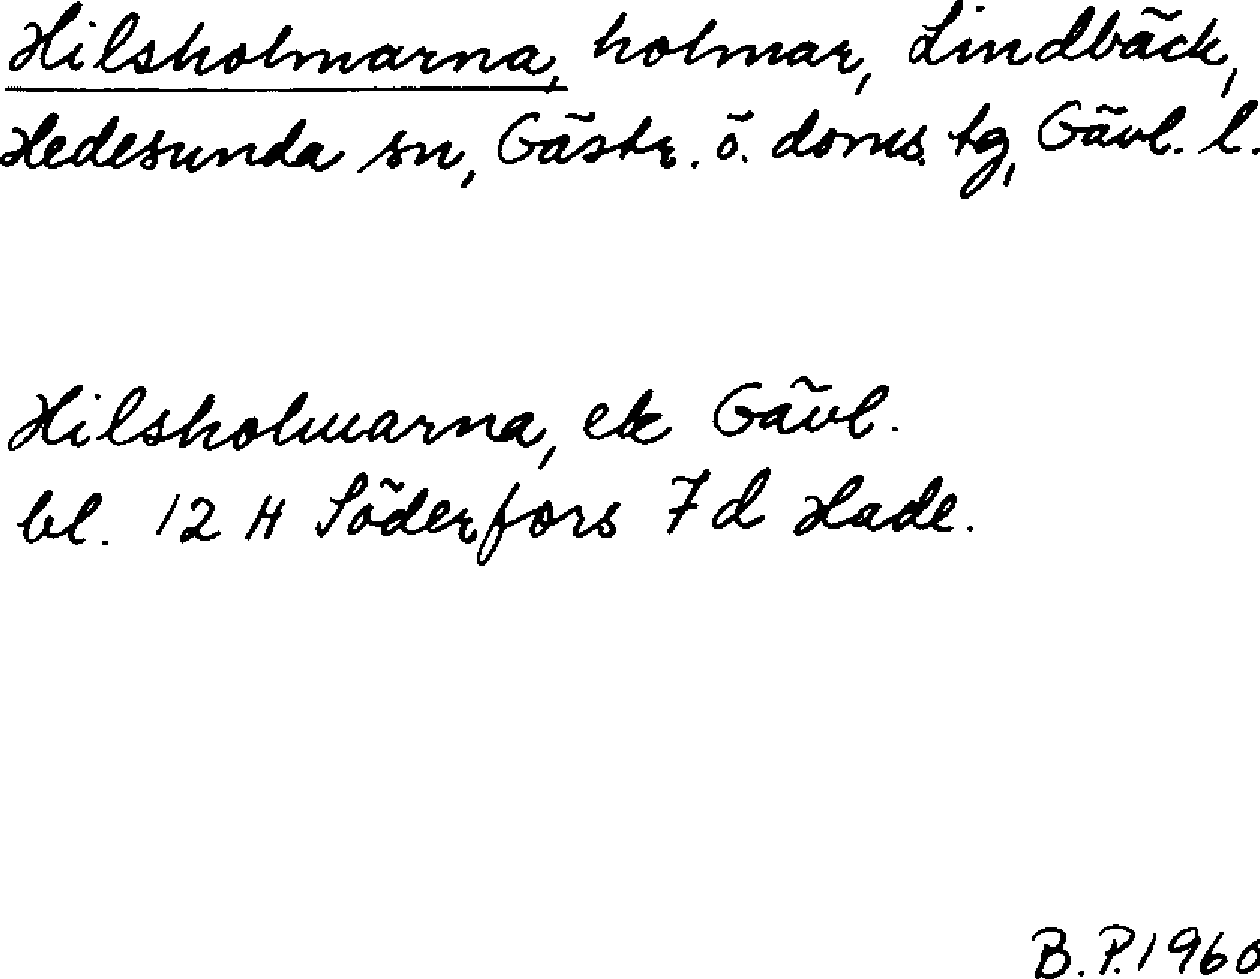 Hilsholmarna, holmar, Lindbäck,
Hedesunda sn, Gästr. ö. doms. tg, Gävl. l.
Hilsholmarna, ek Gävl.
bl. 12 H Söderfors 7 d Hade.
B.P. 1960